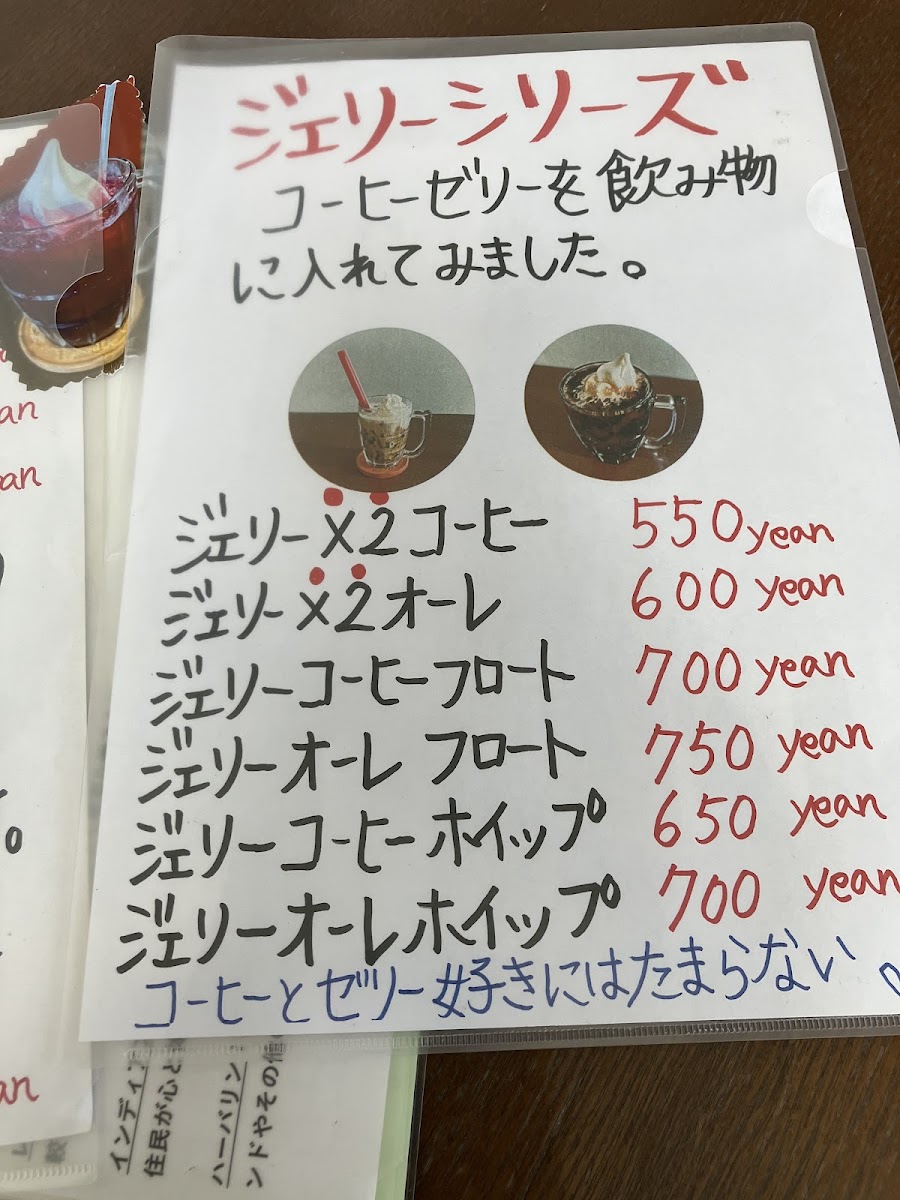 ジェリーシリーズ
コーヒーゼリーを飲み物
に入れてみました。
ジェリーx2コーヒー 550yean
ジェリーx2オーレ 600 yean
ジェリーコーヒーフロート 700 yean
ジェリーオーレ フロート 750 yean
ジェリーコーヒーホイップ 650 yean
ジェリーオーレホイップ 700 yean
コーヒーとゼリー好きにはたまらない
インディ
住民が心と
ハーバリン
ンドやその催